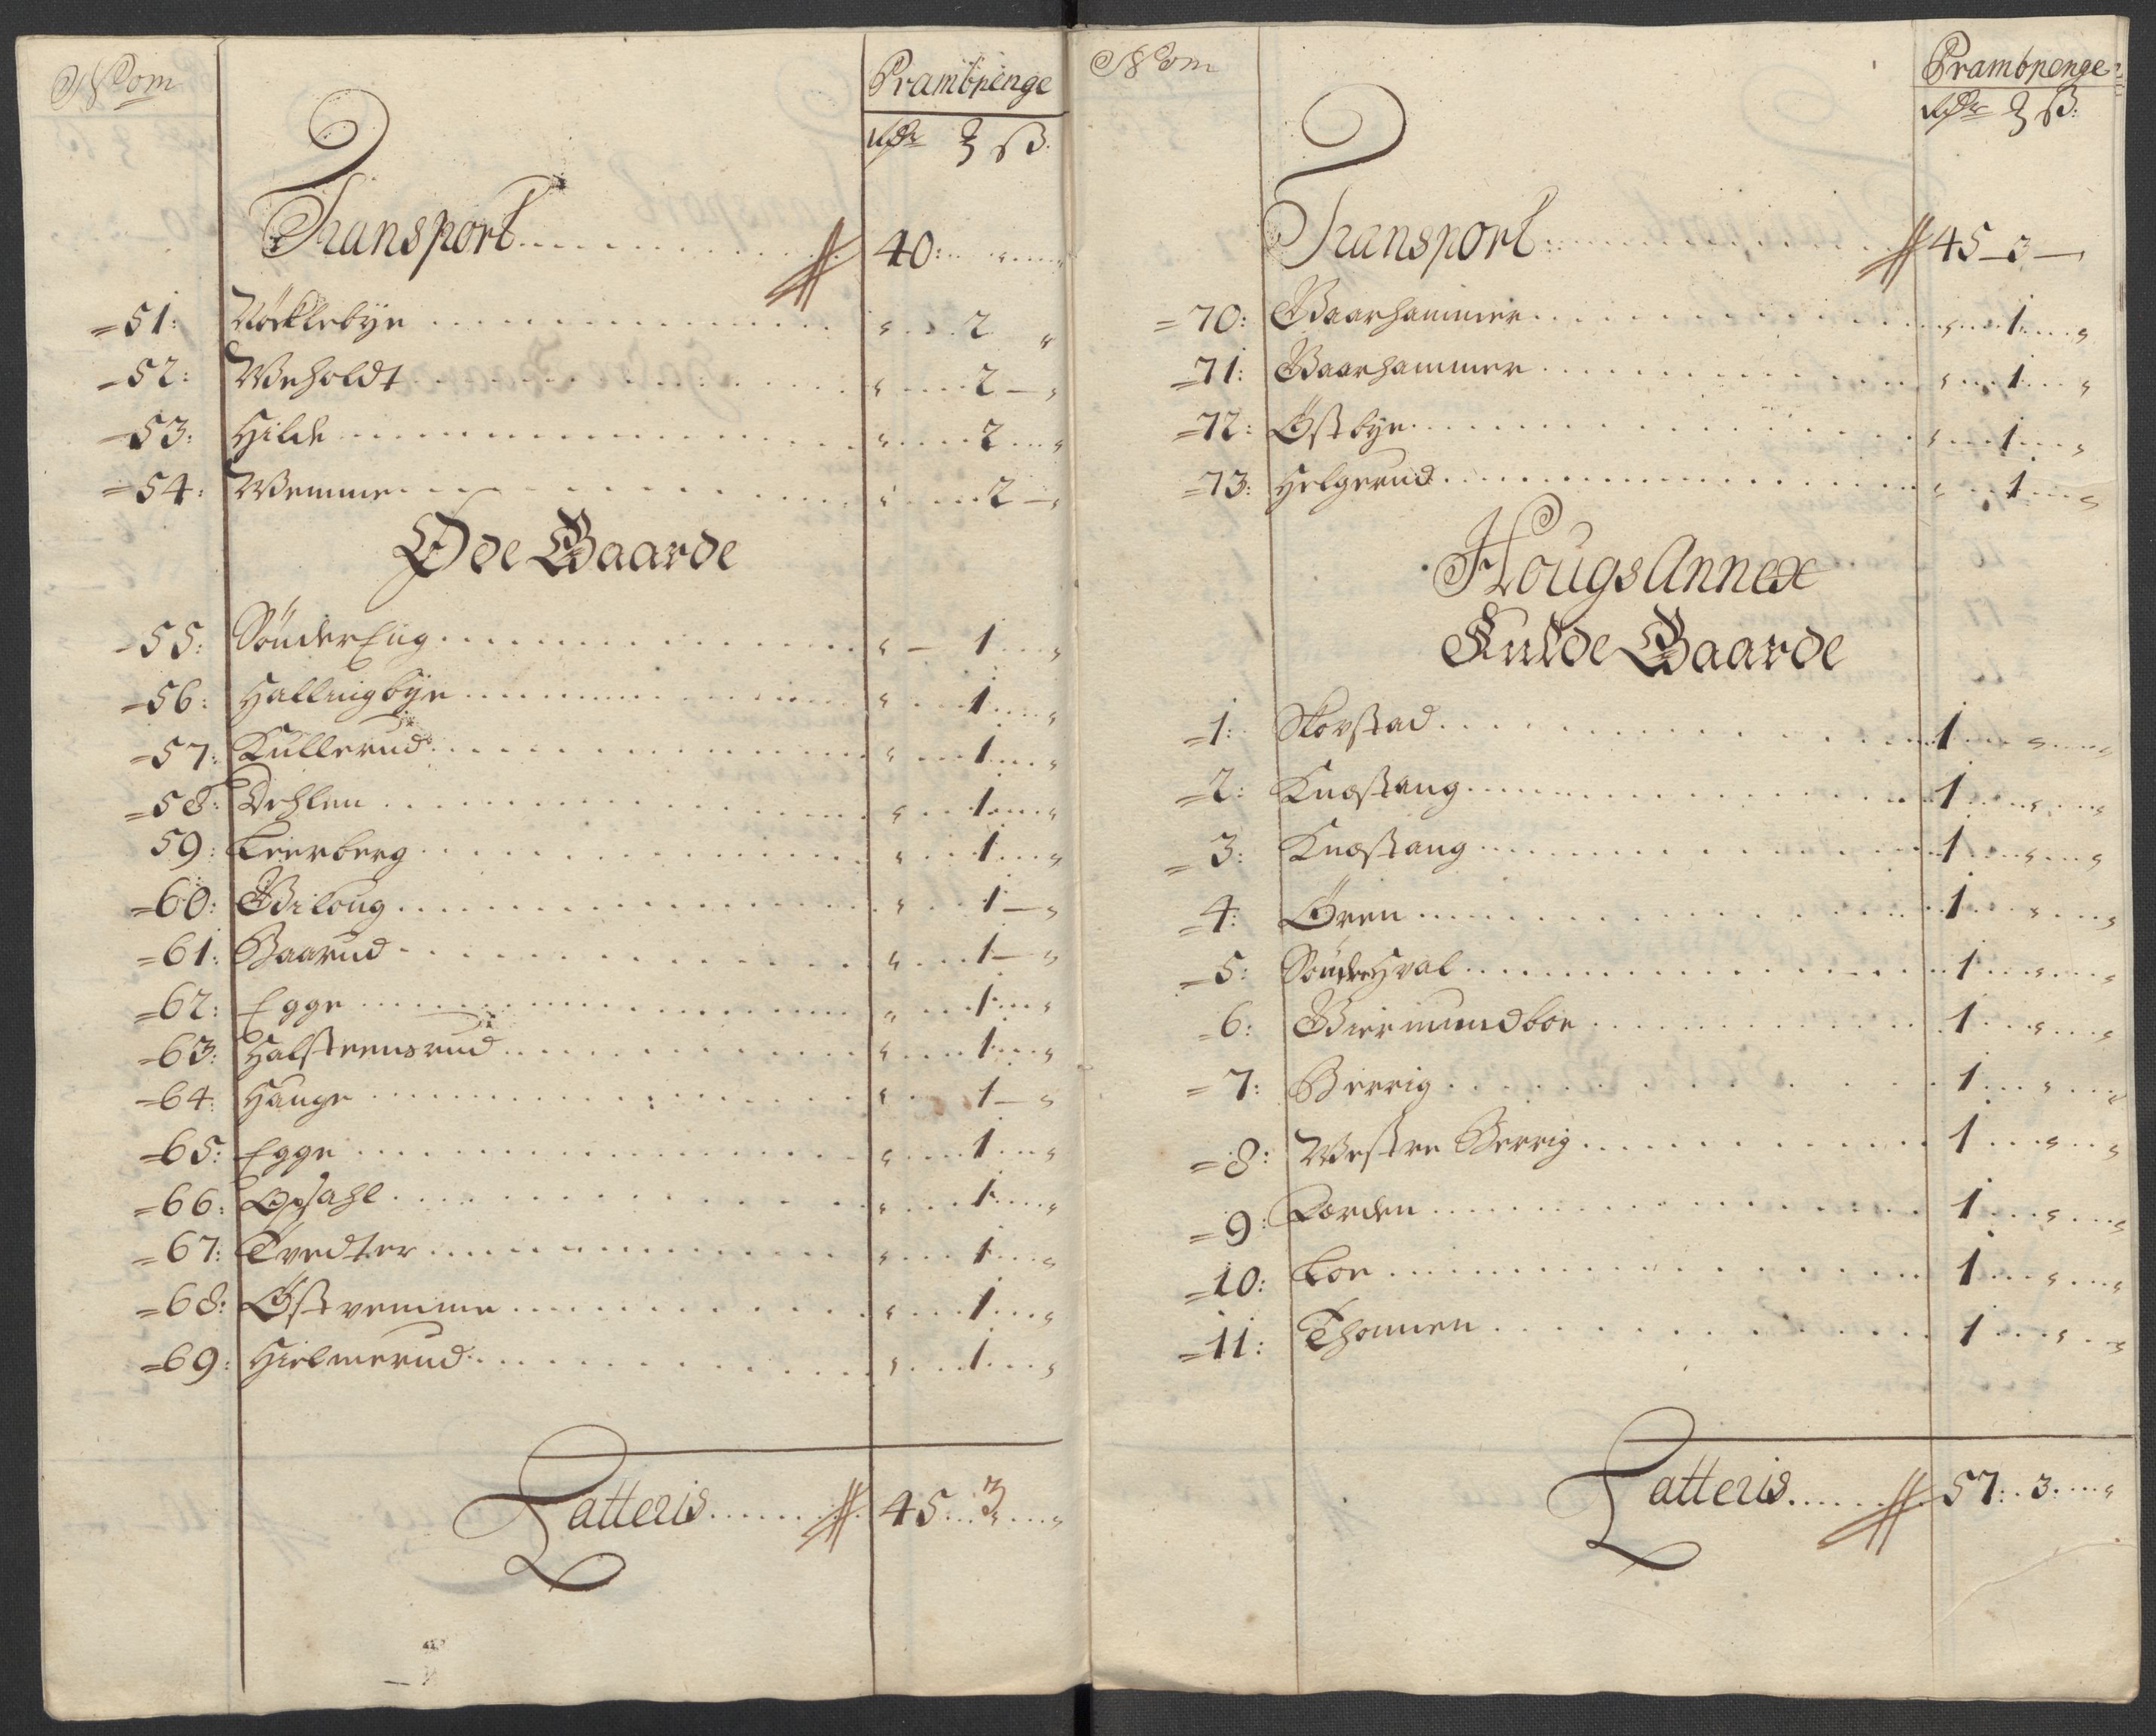 No̅m
Pramb penge
Rdr ȝ ß.
Transport 40: " "
51: Nöcklebÿe " 2 "
52: Weholdt " 2 "
53: Hilde " 2 "
54: Wemme " 2 "
Øde Gaarde
55: SönderEng " 1 "
56: Hallingbÿe " 1 "
57: Kullerud " 1 "
58: Dehlen " 1 "
59: Leerberg " 1 "
60: Biloug " 1 "
61: Baarud " 1 "
62: Egge " 1 "
63: Halsteensrud " 1 "
64: Hauge " 1 "
65: Egge " 1 "
66: Opsahl " 1 "
67: Tvedter " 1 "
68: Östvemme " 1 "
69: Hielmerud " 1 "
Latteris 45 3 "
Nom
Prambpenge
Rdr ȝ ß:
Transport 45 3
70: Baarhammer " 1 "
71: Baarhammer " 1 "
72: Östbÿe " 1 "
73: Helgerud " 1 "
Hougs Annex
Fulde Gaarde
1: Skovstad 1 " "
2: Knæstang 1 " "
3: Knæstang 1 " "
4: Ören 1 " "
5: SönderHval 1 " "
6: Biermundboe 1 " "
7: Berrig 1 " "
8: Westre Berrig 1 " "
9: Lorden 1 " "
10: Loe 1 " "
11: Thomen 1 " "
Latteris 57: 3 "